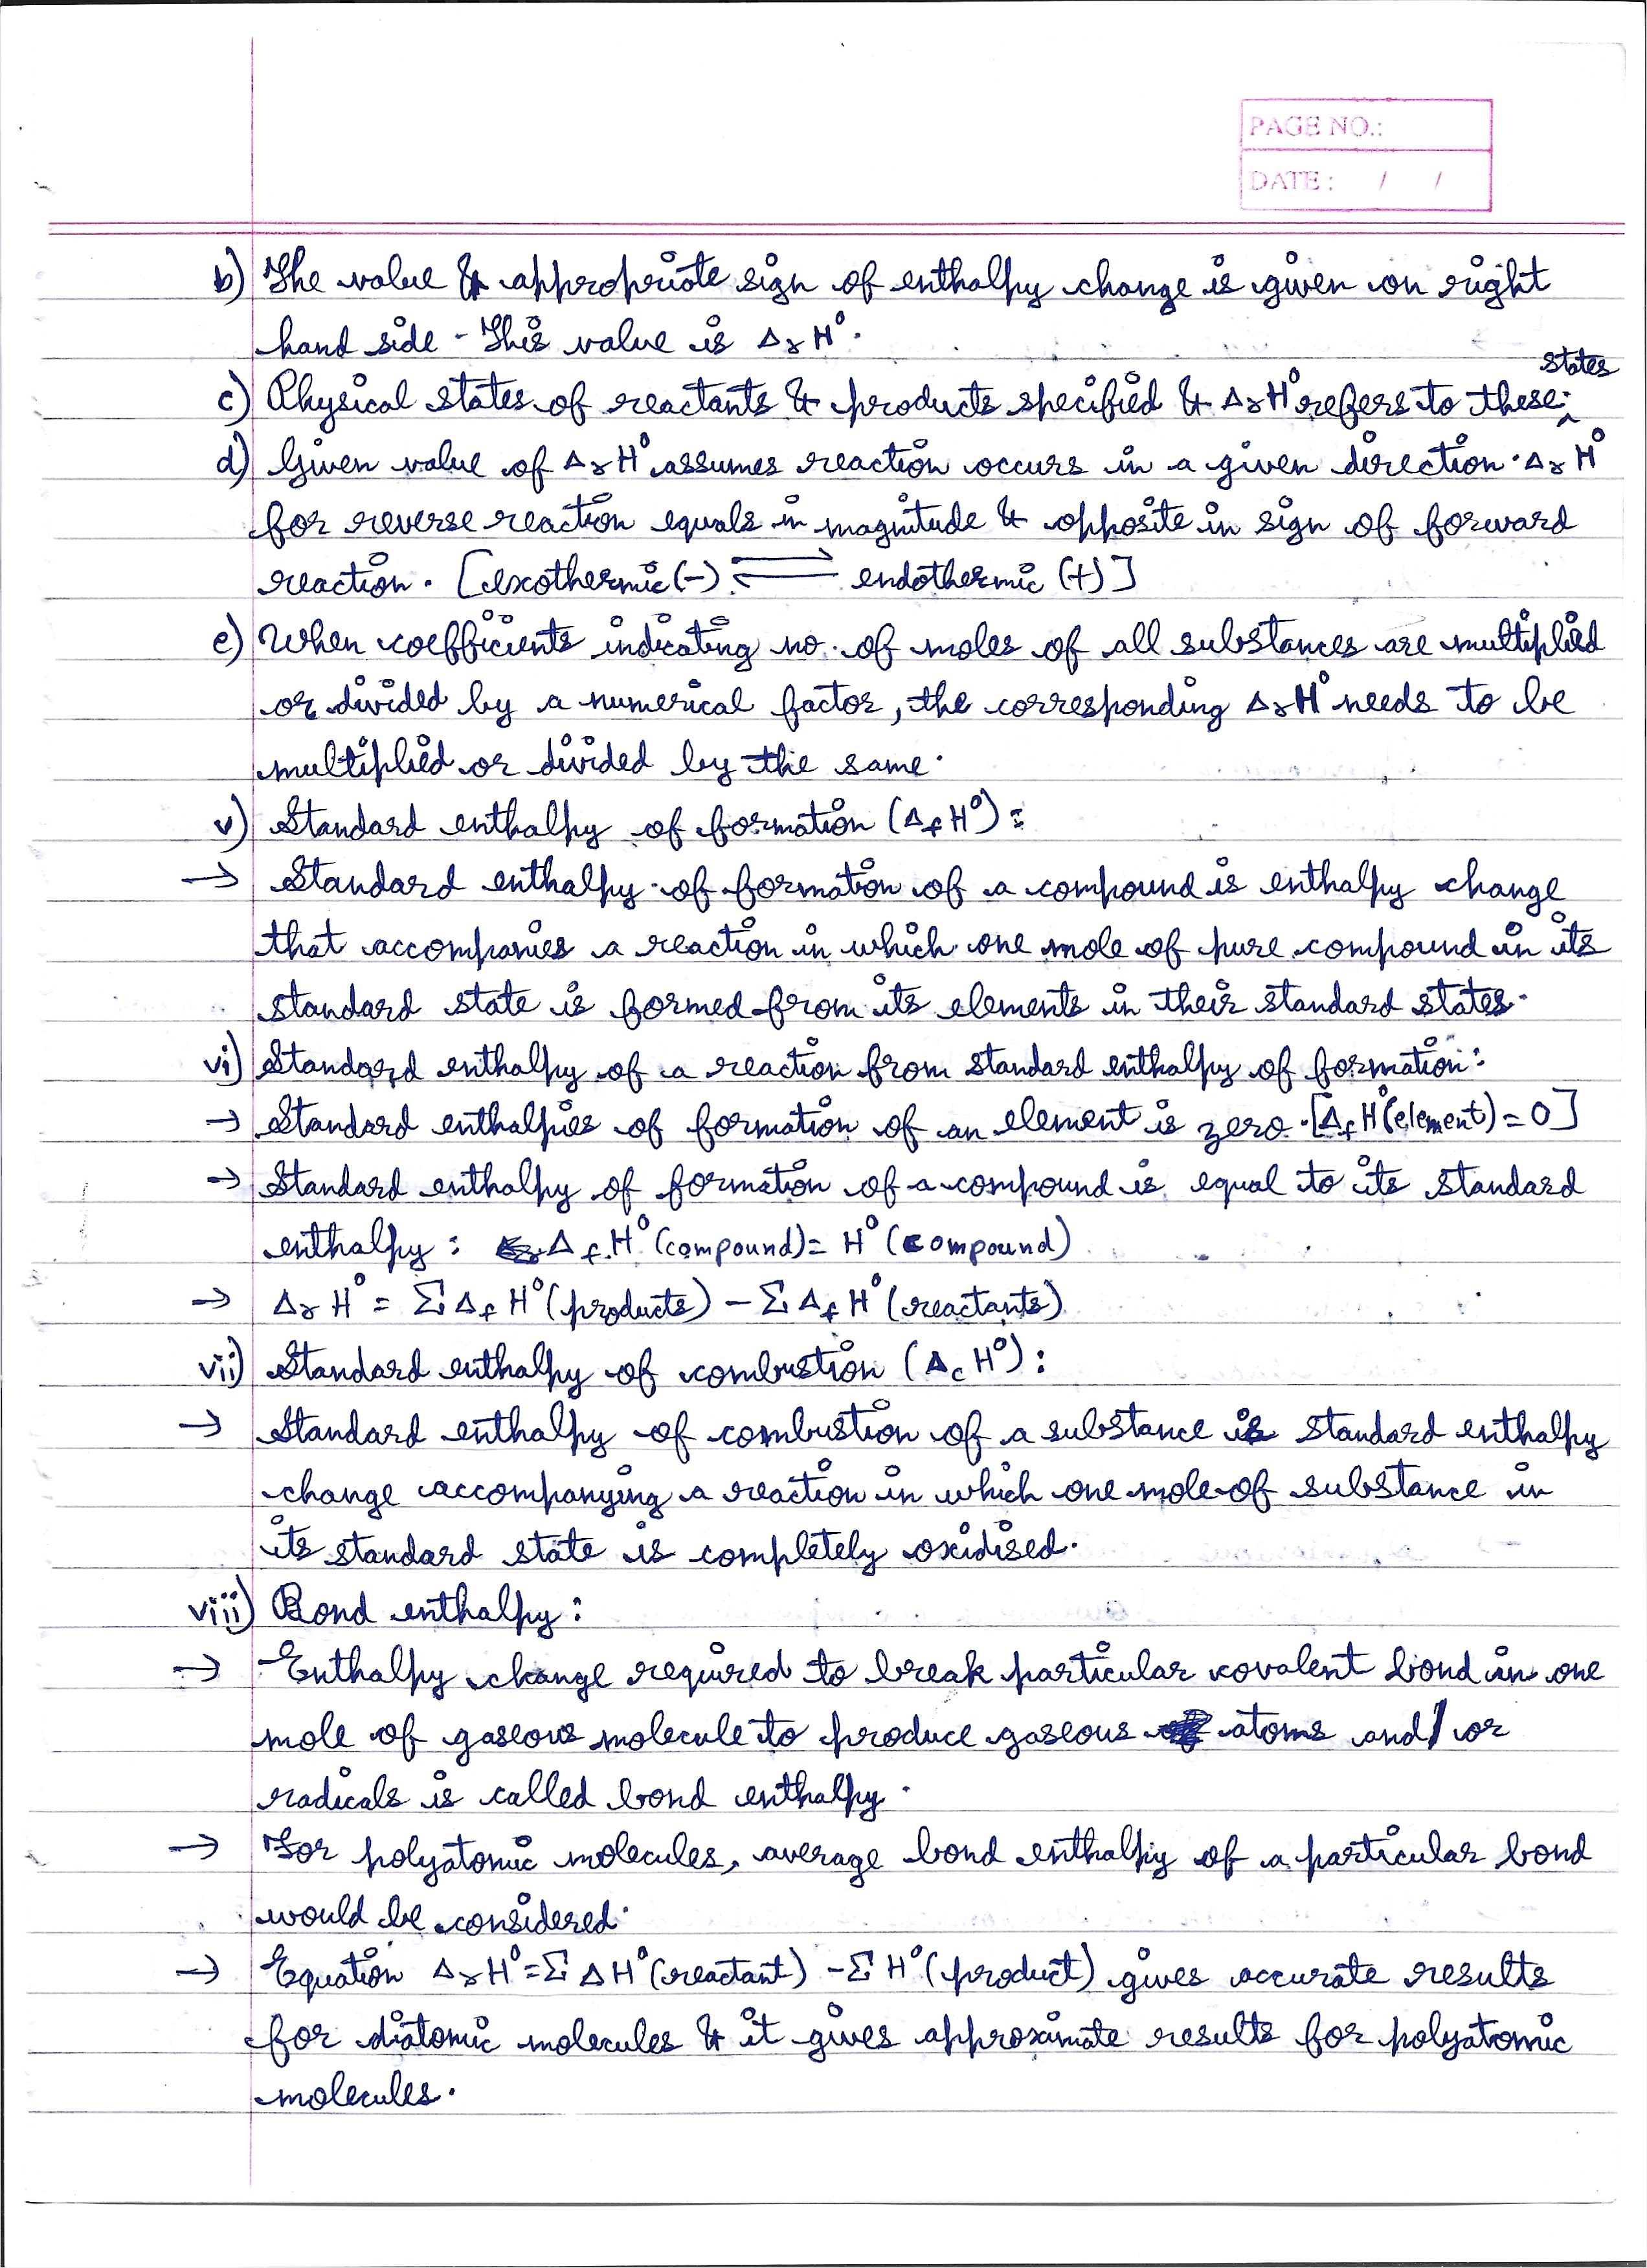 PAGE NO.:
DATE : / /
b) The value & appropriate sign of enthalpy change is given on right
hand side. This value is ΔrH°.
states
c) Physical states of reactants & products specified & ΔrH° refers to these^.
d) Given value of ΔrH° assumes reaction occurs in a given direction. ΔrH°
for reverse reaction equals in magnitude & opposite in sign of forward
reaction. [exothermic (-) ⇌ endothermic (+)]
e) When coefficients indicating no. of moles of all substances are multiplied
or divided by a numerical factor, the corresponding ΔrH° needs to be
multiplied or divided by the same.
v) Standard enthalpy of formation (ΔfH°):
→ Standard enthalpy of formation of a compound is enthalpy change
that accompanies a reaction in which one mole of pure compound in its
standard state is formed from its elements in their standard states.
vi) Standard enthalpy of a reaction from standard enthalpy of formation:
→ Standard enthalpies of formation of an element is zero. [ΔfH°(element) = 0]
→ Standard enthalpy of formation of a compound is equal to its standard
enthalpy: ΔfH° (compound) = H° (compound)
→ ΔrH° = ΣΔfH° (products) - ΣΔfH° (reactants)
vii) Standard enthalpy of combustion (ΔcH°):
→ Standard enthalpy of combustion of a substance is standard enthalpy
change accompanying a reaction in which one mole of substance in
its standard state is completely oxidised.
viii) Bond enthalpy:
→ Enthalpy change required to break particular covalent bond in one
mole of gaseous molecule to produce gaseous atoms and / or
radicals is called bond enthalpy.
→ For polyatomic molecules, average bond enthalpy of a particular bond
would be considered.
→ Equation ΔrH° = ΣΔH° (reactant) - ΣH° (product) gives accurate results
for diatomic molecules & it gives approximate results for polyatomic
molecules.